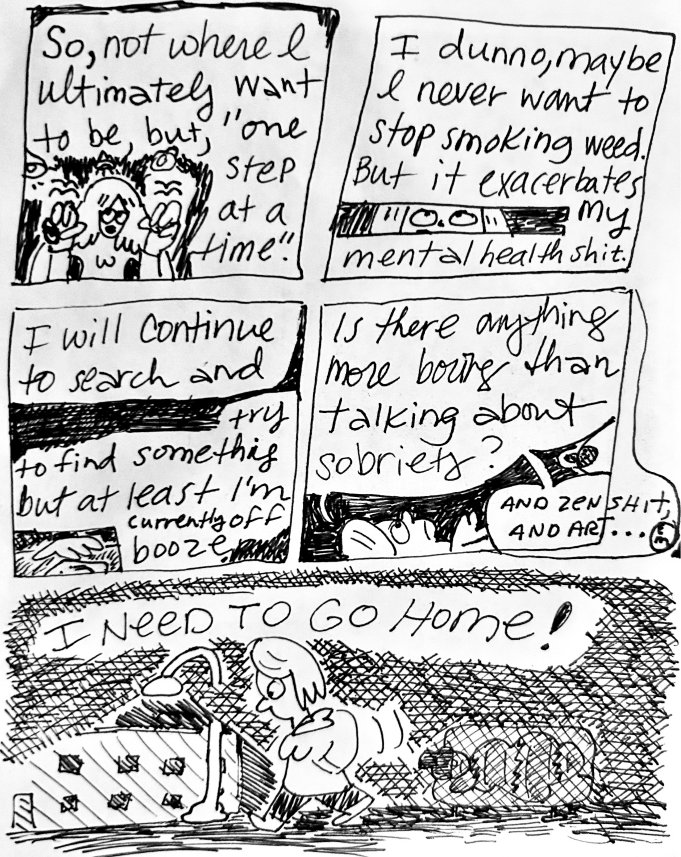 So, not where I
ultimately want
to be, but, "one
step
at a
time".
I dunno, maybe
I never want to
stop smoking weed.
But it exacerbates
my
mental health shit.
I will continue
to search and
try
to find something
but at least I'm
currently off
booze.
Is there anything
more boring than
talking about
sobriety?
AND ZEN SHIT,
AND ART...
I NEED TO GO HOME!